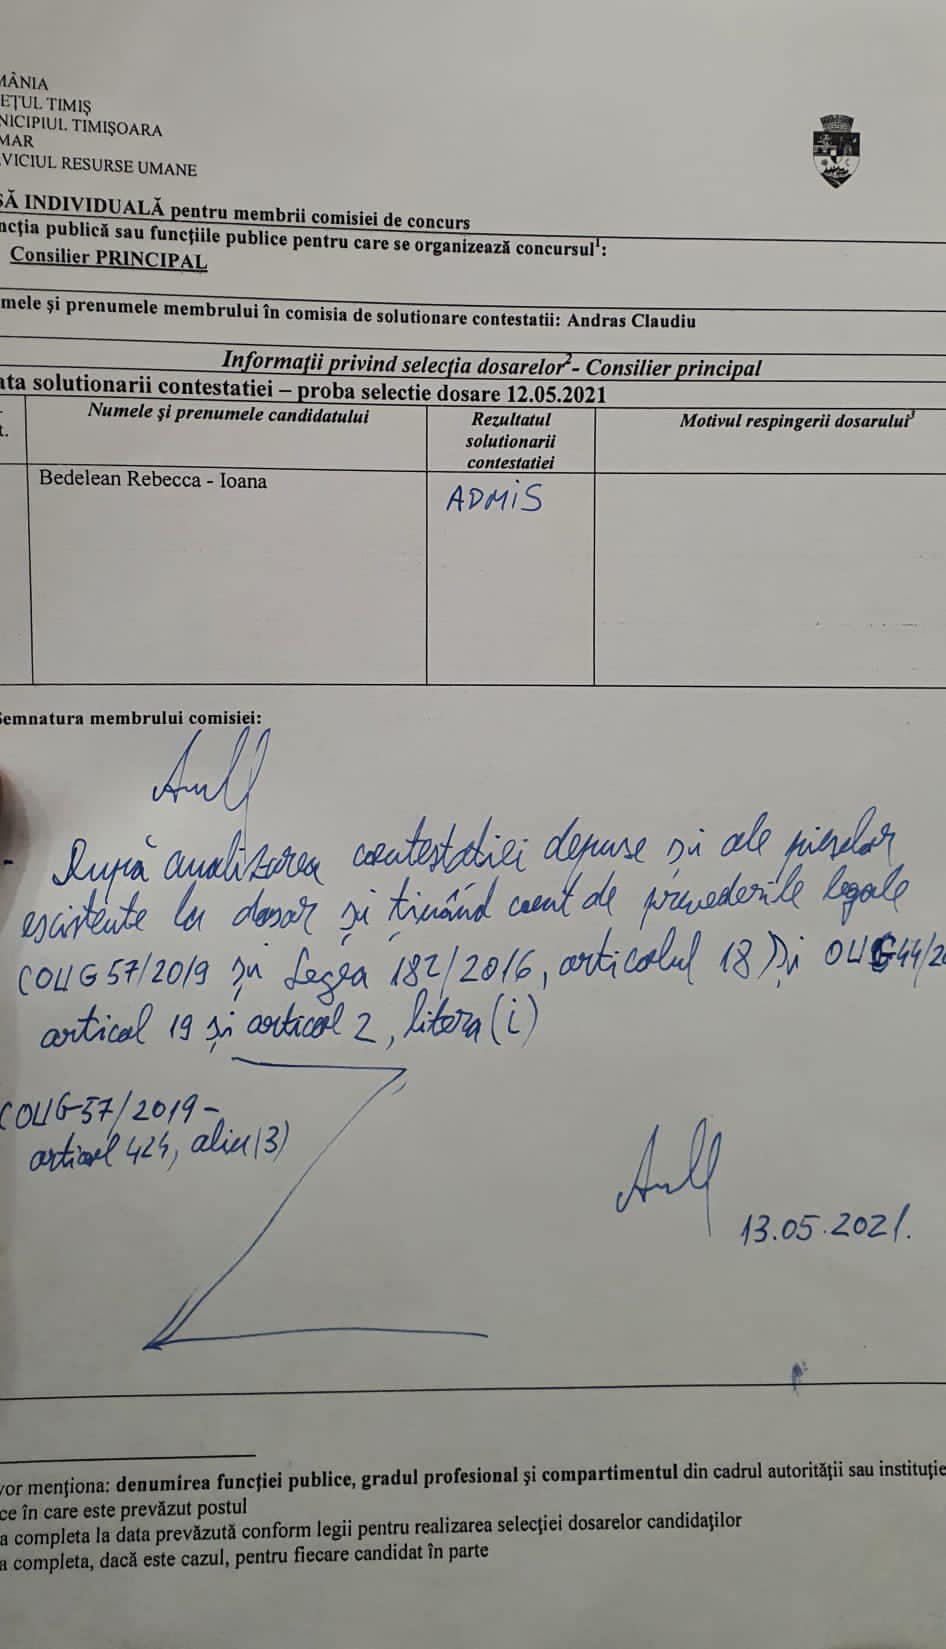 MÂNIA
EŢUL TIMIŞ
NICIPIUL TIMIŞOARA
MAR
VICIUL RESURSE UMANE
SĂ INDIVIDUALĂ pentru membrii comisiei de concurs
ncţia publică sau funcţiile publice pentru care se organizează concursul1:
Consilier PRINCIPAL
mele şi prenumele membrului în comisia de solutionare contestatii: Andras Claudiu
Informaţii privind selecţia dosarelor2 - Consilier principal
ata solutionarii contestatiei – proba selectie dosare 12.05.2021
t.
Numele şi prenumele candidatului
Rezultatul
solutionarii
contestatiei
Motivul respingerii dosarului3
Bedelean Rebecca - Ioana
ADMiS
Semnatura membrului comisiei:
- După analizarea contestatiei depuse și ale pieselor
existente la dosar și ținând cont de prevederile legale
(OUG 57/2019 și Legea 182/2016, articolul 18) și OUG 44/20
articol 19 și articol 2, litera (i)
(OUG-57/2019 -
articol 424, alin (3)
13.05.2021.
vor menţiona: denumirea funcţiei publice, gradul profesional şi compartimentul din cadrul autorităţii sau instituţie
ce în care este prevăzut postul
a completa la data prevăzută conform legii pentru realizarea selecţiei dosarelor candidaţilor
a completa, dacă este cazul, pentru fiecare candidat în parte